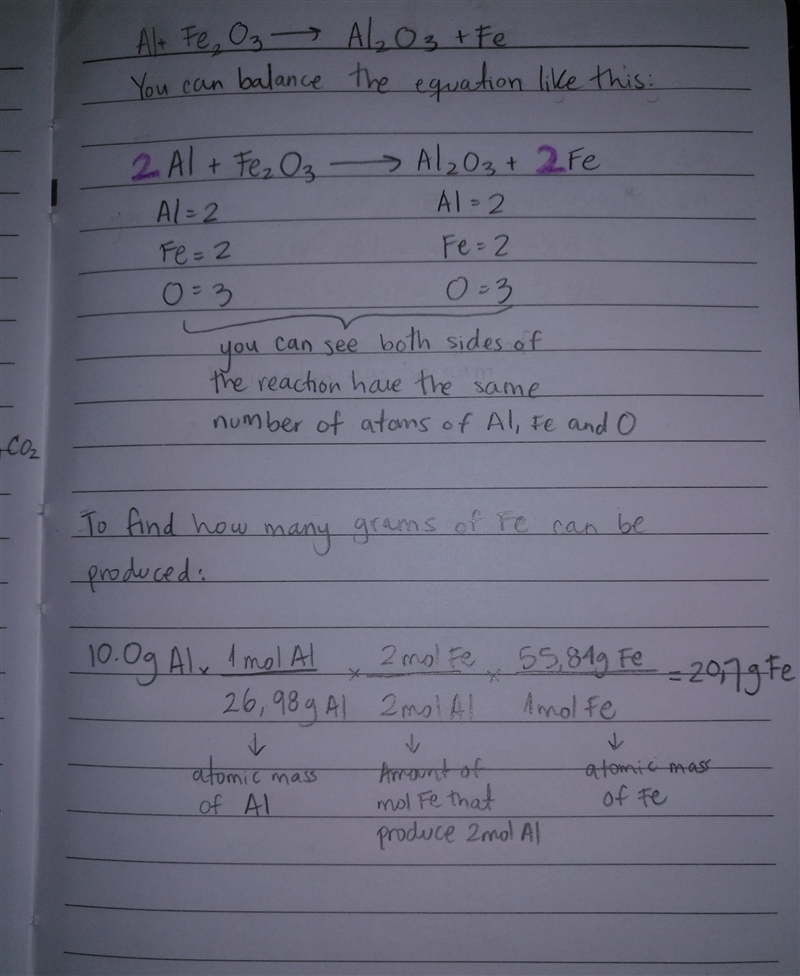 Al+ Fe₂O₃ → Al₂O₃ + Fe
You can balance the equation like this:
2 Al + Fe₂O₃ → Al₂O₃ + 2 Fe
Al = 2 Al = 2
Fe = 2 Fe = 2
O = 3 O = 3
you can see both sides of
the reaction have the same
number of atoms of Al, Fe and O
CO₂
To find how many grams of Fe can be
produced:
10.0g Al × 1mol Al / 26,98g Al × 2mol Fe / 2mol Al × 55,84g Fe / 1mol Fe = 20,7g Fe
↓ ↓ ↓
atomic mass Amount of atomic mass
of Al mol Fe that of Fe
produce 2mol Al